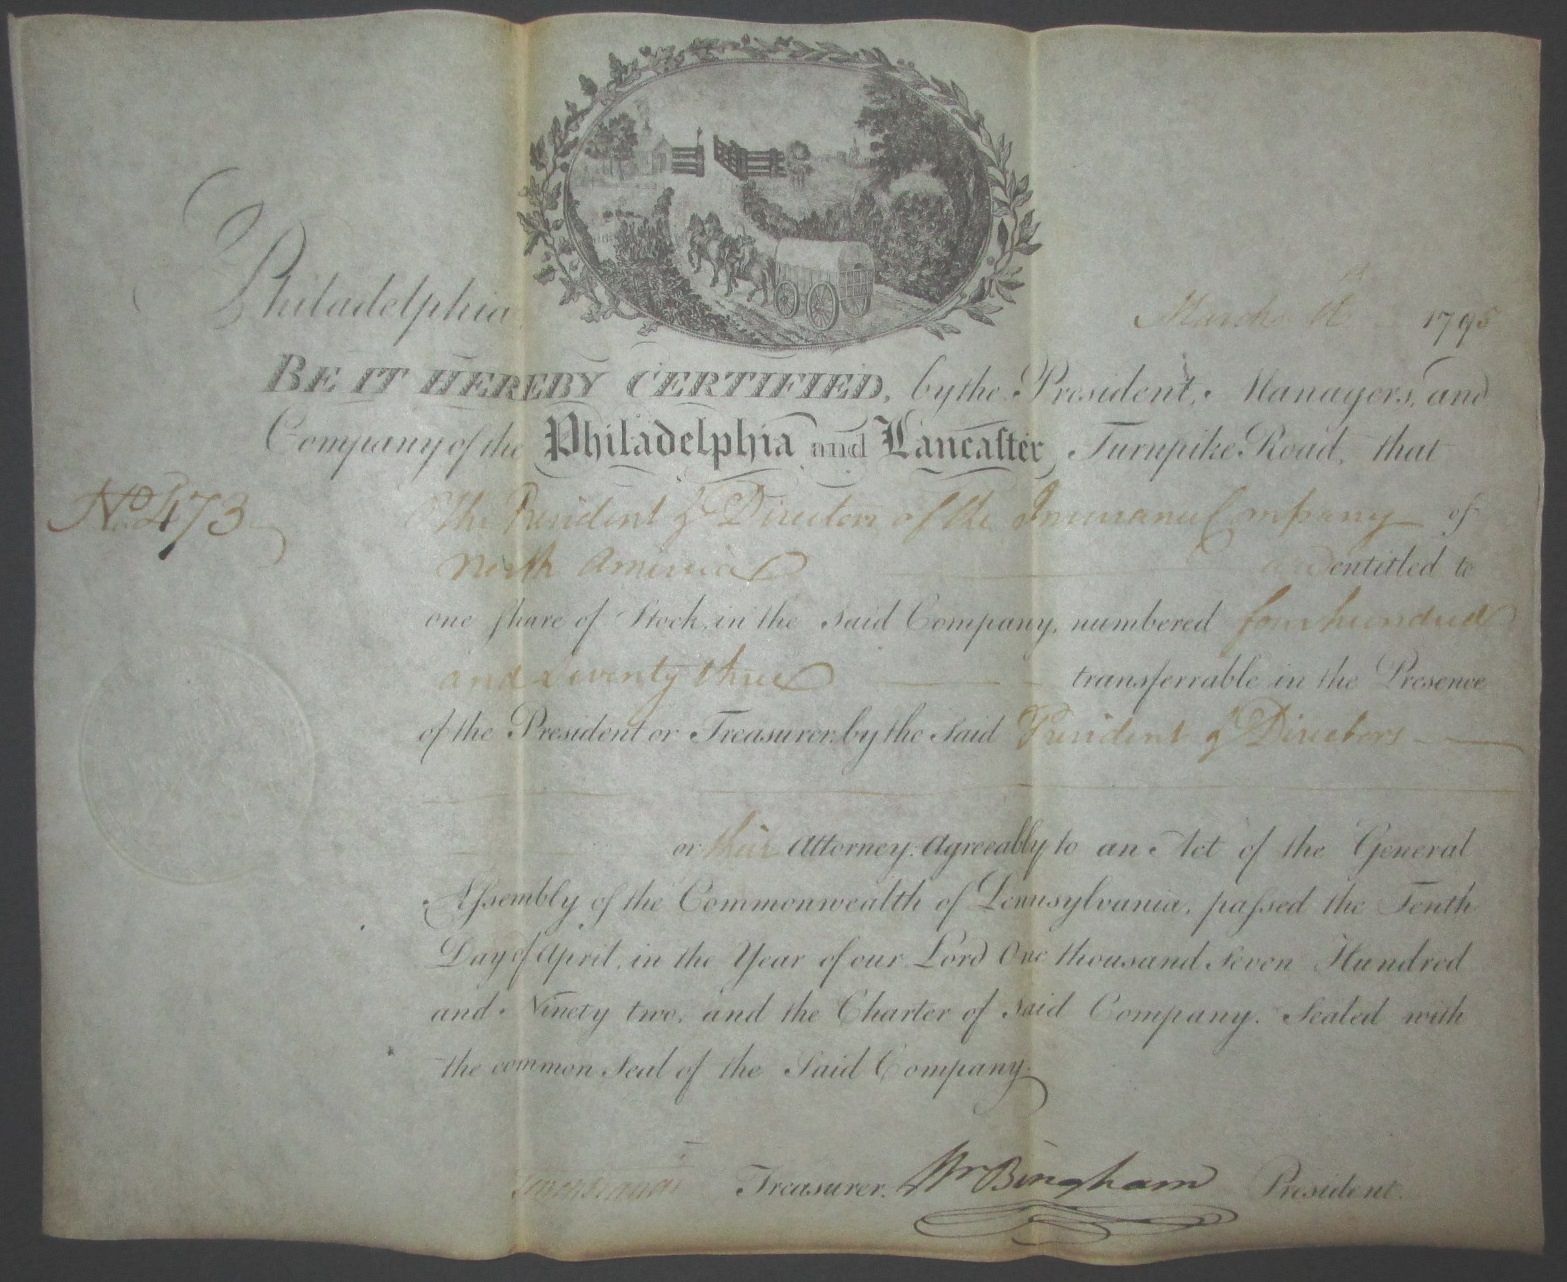 Philadelphia, March 1795
BE IT HEREBY CERTIFIED, by the President, Managers, and
Company of the Philadelphia and Lancaſter Turnpike Road, that
No. 473 The President & Directors of the Insurance Company of
North America are entitled to
one ſhare of Stock, in the Said Company, numbered four hundred
and seventy three transferrable in the Presence
of the President or Treasurer, by the Said President & Directors
or their Attorney. Agreeably to an Act of the General
Aſsembly of the Commonwealth of Pennsylvania, paſsed the Tenth
Day of April, in the Year of our Lord One thousand Seven Hundred
and Ninety two, and the Charter of Said Company. Sealed with
the common Seal of the Said Company.
Treasurer. Wm Bingham President.